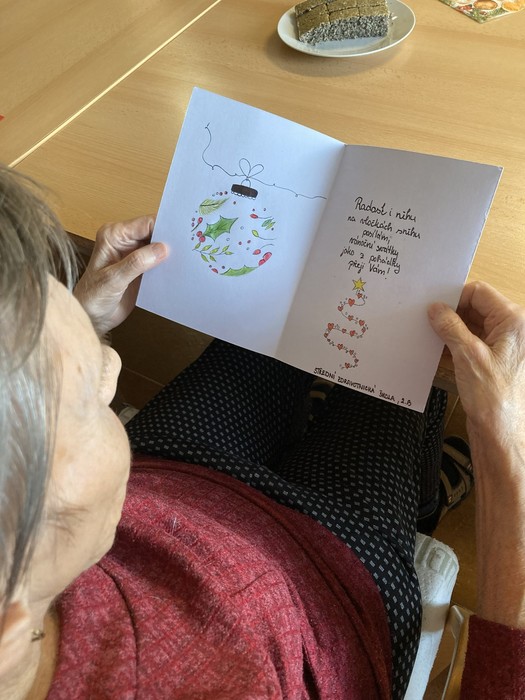 Radost i něhu
na vločkách sněhu
posílám,
vánoční svátky
jako z pohádky
přeji Vám!
STŘEDNÍ ZDRAVOTNICKÁ ŠKOLA, 2.B